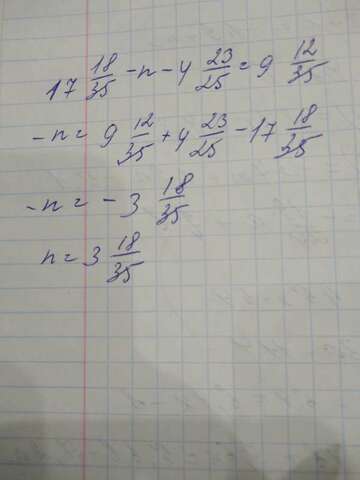 17 18/35 - n - 4 23/25 = 9 12/35
-n = 9 12/35 + 4 23/25 - 17 18/35
-n = - 3 18/35
n = 3 18/35